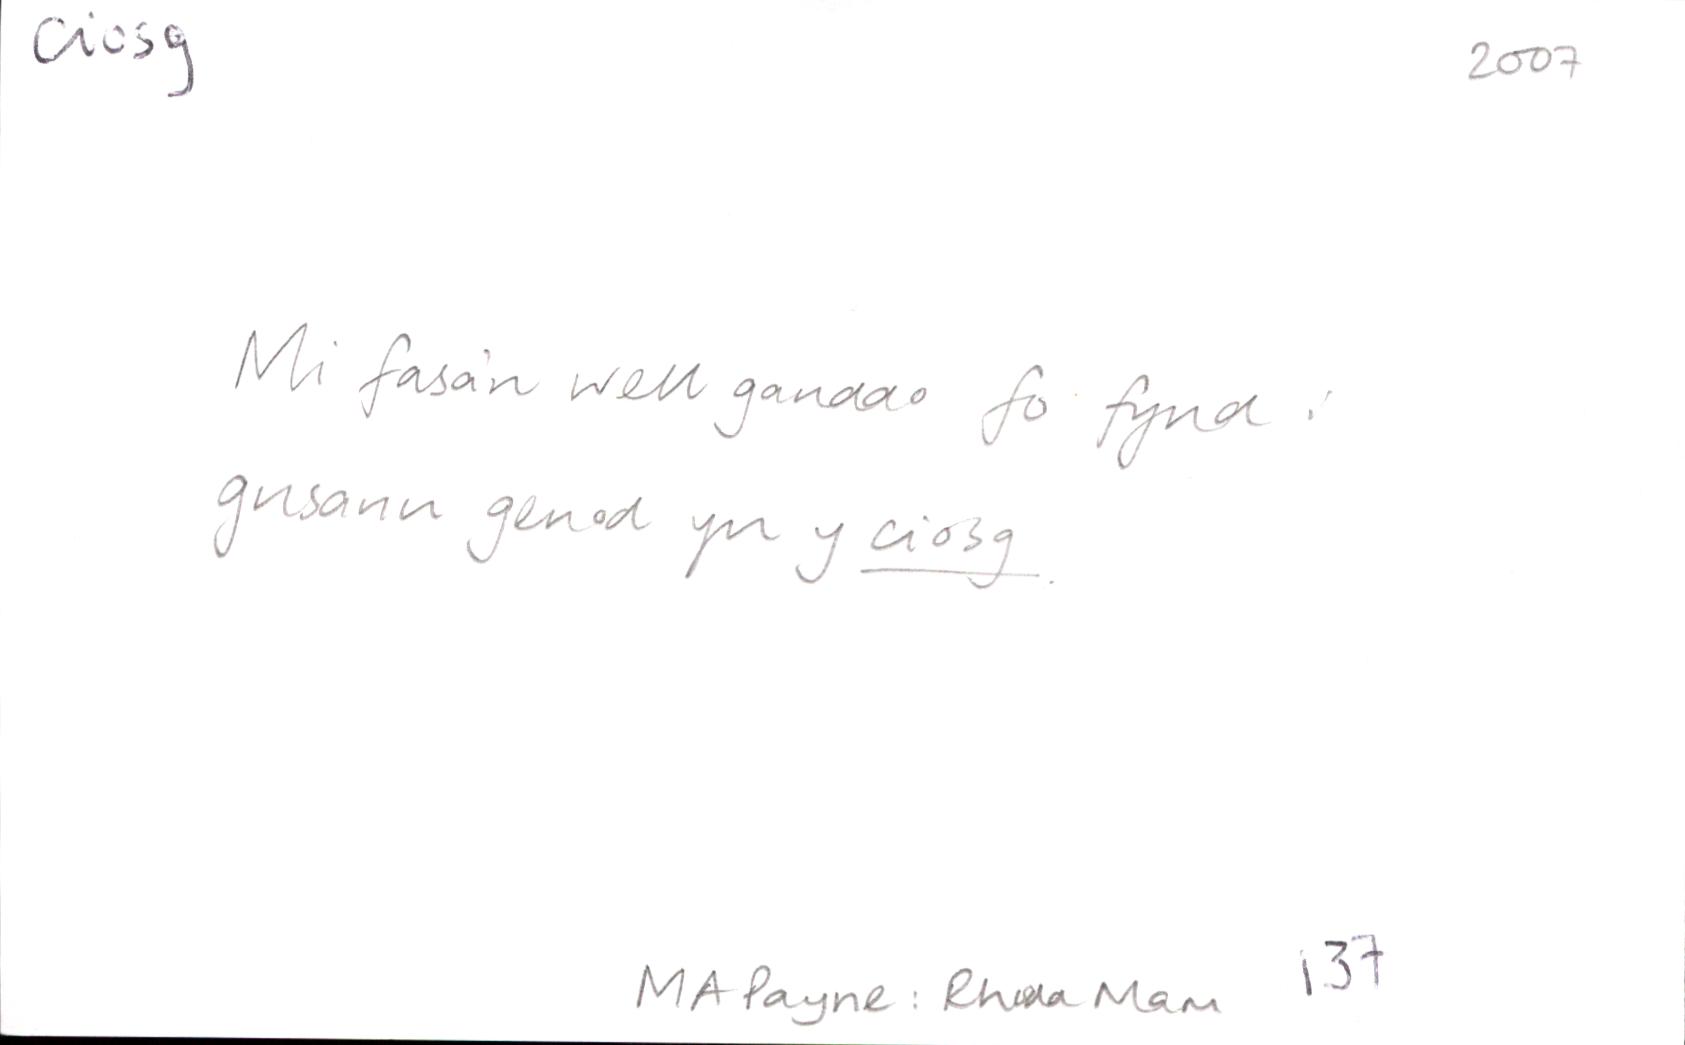 ciosg
2007
Mi fasa'n well ganddo fo fynd i
gusanu genod yn y ciosg.
MA Payne: Rhoda Mam 137